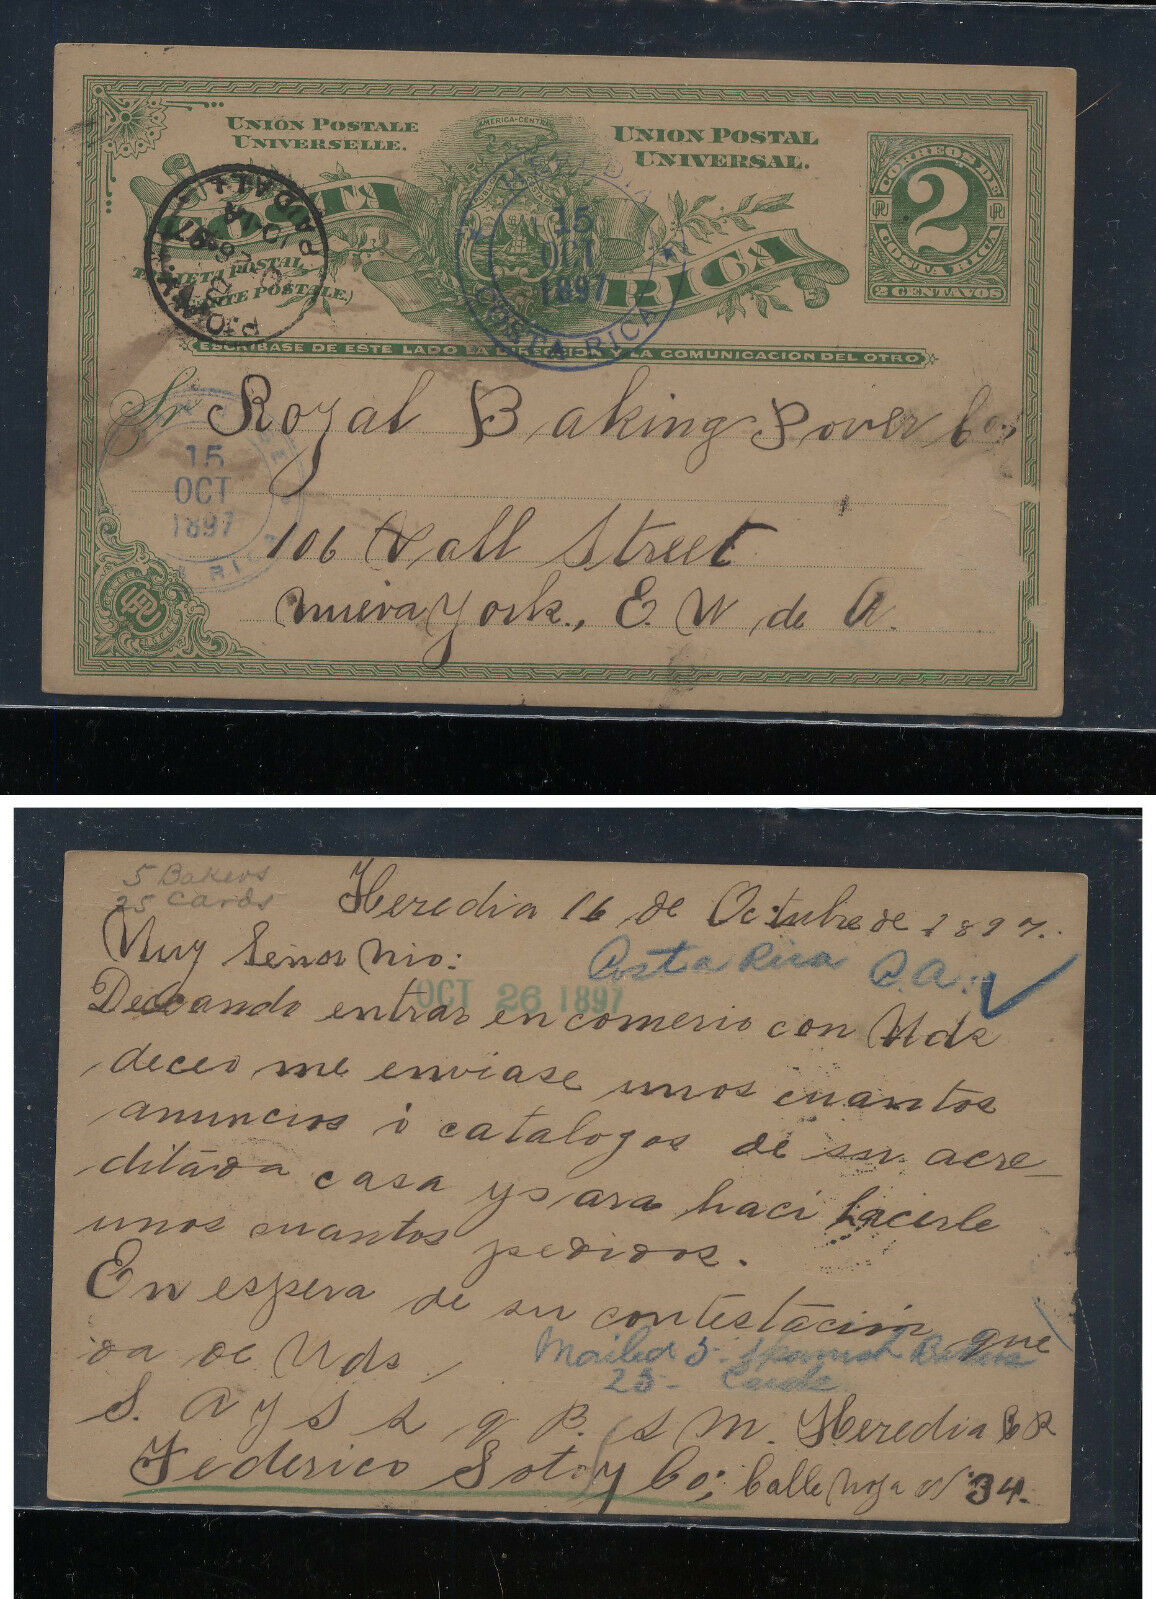 UNIÓN POSTALE
UNIVERSELLE.
AMERICA-CENTRAL
UNION POSTAL
UNIVERSAL.
COSTA RICA
TARJETA POSTAL
POSTALE.)
CORREOS DE
2
COSTA RICA
2 CENTAVOS
PAID ALL
HEREDIA
15
OCT
1897
COSTA RICA
ESCRÍBASE DE ESTE LADO LA DIRECCIÓN Y LA COMUNICACIÓN DEL OTRO
15
OCT
1897
RICA
Sr Royal Baking Pover Co;
106 Wall Street
Nueva York., E. W de A.
5 Bakers
25 Cards
Heredia 16 de Octubre de 1897.
Muy Señor Mio:
Costa Rica C.A.
OCT 26 1897
Deceando entrar en comerio con Uds
deceo me enviase unos cuantos
anuncios i catalogos de su acre
ditada casa y sara haci hacerle
unos cuantos pedidos.
En espera de su contestación que
da de Uds,
Mailed 5 - Spanish Bakers
25 - Cards
S. A y S S q B. S M. Heredia C R
Federico Soto y Co; Calle Noja N 34.